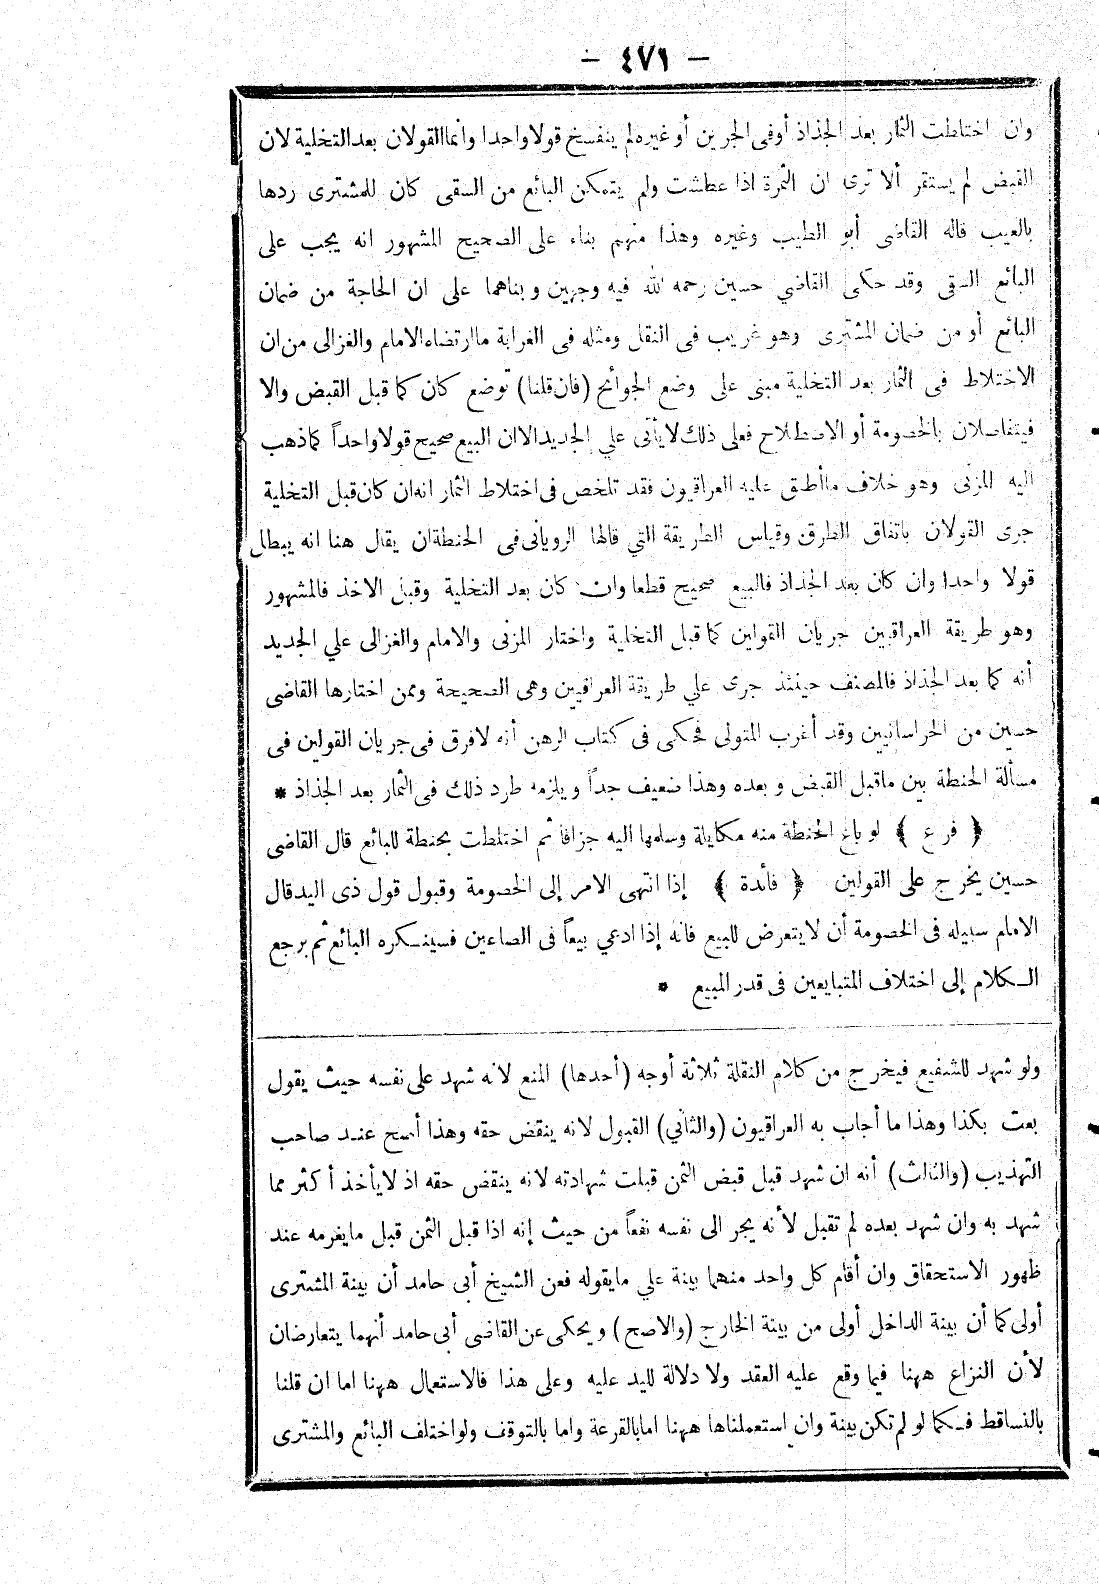 - ٤٧١ -
وان اختلطت الثمار بعد الجذاذ أوفى الجرين أو غيره لم ينفسخ قولا واحدا وانما القولان بعد التخلية لان
القبض لم يستقر ألا ترى ان الثمرة اذا عطشت ولم يتمكن البائع من السقى كان للمشترى ردها
بالعيب قاله القاضى أبو الطيب وغيره وهذا منهم بناء على الصحيح المشهور انه يجب على
البائع السقى وقد حكى القاضي حسين رحمه الله فيه وجهين وبناهما على ان الحاجة من ضمان
البائع أو من ضمان المشترى وهو غريب فى النقل ومثله فى الغرابة ما ارتضاه الامام والغزالى من ان
الاختلاط فى الثمار بعد التخلية مبنى على وضع الجوائح (فان قلنا) توضع كان كما قبل القبض والا
فيتفاصلان بالخصومة أو الاصطلاح فعلى ذلك لا يأتى علي الجديد الا ان البيع صحيح قولا واحداً كما ذهب
اليه المزنى وهو خلاف ما أطبق عليه العراقيون فقد تلخص فى اختلاط الثمار انه ان كان قبل التخلية
جرى القولان باتفاق الطرق وقياس الطريقة التي قالها الرويانى فى الحنطة ان يقال هنا انه يبطل
قولا واحدا وان كان بعد الجذاذ فالبيع صحيح قطعا وان كان بعد التخلية وقبل الاخذ فالمشهور
وهو طريقة العراقيين جريان القولين كما قبل التخلية واختار المزنى والامام والغزالى علي الجديد
أنه كما بعد الجذاذ فالمصنف حينئذ جرى علي طريقة العراقيين وهى الصحيحة وممن اختارها القاضى
حسين من الخراسانيين وقد أغرب المتولى فحكى فى كتاب الرهن أنه لا فرق فى جريان القولين فى
مسألة الحنطة بين ما قبل القبض وبعده وهذا ضعيف جداً ويلزمه طرد ذلك فى الثمار بعد الجذاذ *
﴿ فرع ﴾ لو باع الحنطة منه مكايلة وسلمها اليه جزافا ثم اختلطت بحنطة للبائع قال القاضى
حسين يخرج على القولين ﴿ فائدة ﴾ إذا انتهى الامر إلى الخصومة وقبول قول ذى اليد قال
الامام سبيله فى الخصومة أن لا يتعرض للبيع فانه إذا ادعي بيعاً فى الصاعين فسينكره البائع ثم يرجع
الكلام إلى اختلاف المتبايعين فى قدر المبيع *
ولو شهد للشفيع فيخرج من كلام النقلة ثلاثة أوجه (أحدها) المنع لانه شهد على نفسه حيث يقول
بعت بكذا وهذا ما أجاب به العراقيون (والثاني) القبول لانه ينقض حقه وهذا أصح عند صاحب
التهذيب (والثالث) أنه ان شهد قبل قبض الثمن قبلت شهادته لانه ينقض حقه اذ لا يأخذ أكثر مما
شهد به وان شهد بعده لم تقبل لأنه يجر الى نفسه نفعاً من حيث إنه اذا قبل الثمن قبل ما يغرمه عند
ظهور الاستحقاق وان أقام كل واحد منهما بينة علي ما يقوله فعن الشيخ أبى حامد أن بينة المشترى
أولى كما أن بينة الداخل أولى من بينة الخارج (والاصح) ويحكى عن القاضى أبى حامد أنهما يتعارضان
لأن النزاع ههنا فيما وقع عليه العقد ولا دلالة لليد عليه وعلى هذا فالاستعمال ههنا اما ان قلنا
بالتساقط فكما لو لم تكن بينة وان استعملناها ههنا اما بالقرعة واما بالتوقف ولو اختلف البائع والمشترى